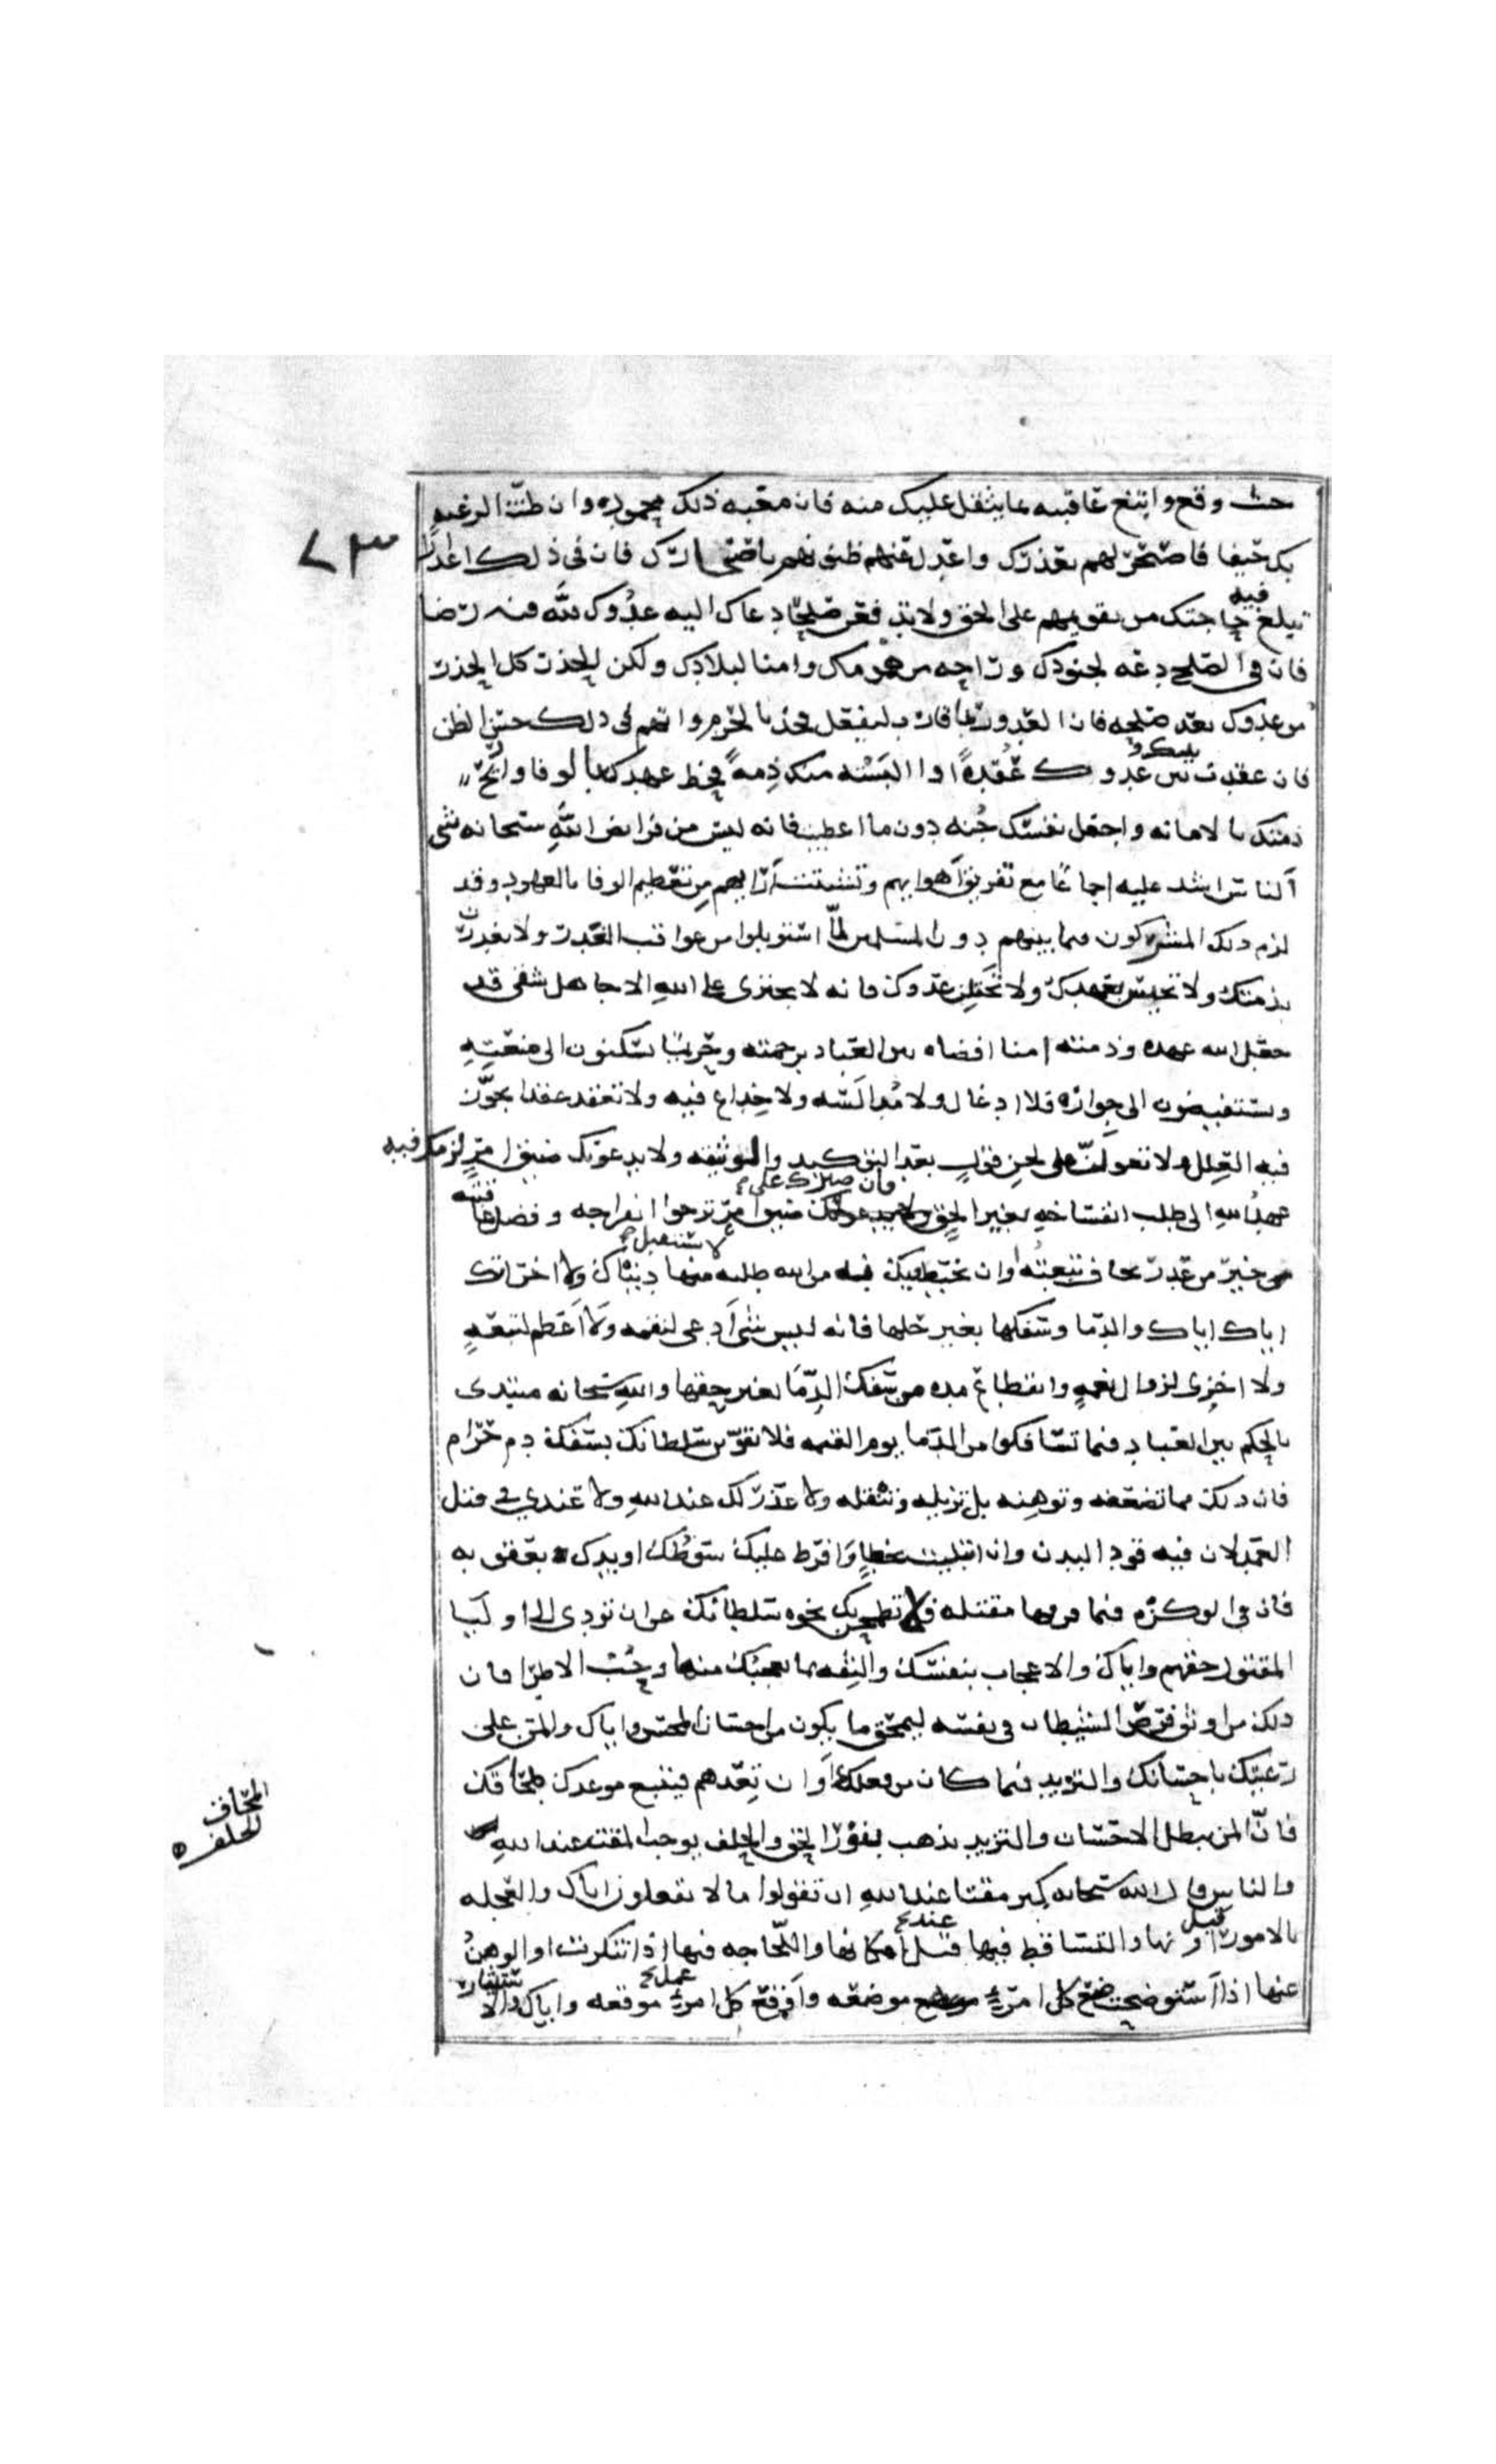 حيث وقع وابتغ عاقبته بما يثقل عليك منه فان مغبة ذلك محموده وان ظنت الرعيه
بك حيفا فاصحر لهم بعذرك واعدل عنهم ظنونهم باصحارك فان في ذلك اعذارا
تبلغ فيه حاجتك من تقويمهم على الحق ولا تدفعن صلحا دعاك اليه عدوك لله فيه رضا
فان في الصلح دعه لجنودك وراحه من همومك وامنا لبلادك ولكن الحذر كل الحذر
من عدوك بعد صلحه فان العدو ربما قارب ليتغفل فخذ بالحزم واتهم في ذلك حسن الظن
فان عقدت بينك وبين عدوك عقدة او البسته منك ذمة فحط عهدك بالوفا وارع
ذمتك بالامانه واجعل نفسك جنه دون ما اعطيت فانه ليس من فرايض الله سبحانه شي
الناس اشد عليه اجماعا مع تفريق اهوايهم وتشتت آرايهم من تعظيم الوفا بالعهود وقد
لزم ذلك المشركون فيما بينهم دون المسلمين لما استوبلوا من عواقب الغدر ولا تغدرن
بذمتك ولا تخيسن بعهدك ولا تختلن عدوك فانه لا يجتري على الله الا جاهل شقي قد
جعل الله عهده وذمته امنا افضاه بين العباد برحمته وحريما يسكنون الى منعته
ويستفيضون الى جواره فلا ادغال ولا مدالسه ولا خداع فيه ولا تعقد عقدا يجوز
فيه العلل ولا تعولن على لحن قول بعد التوكيد والتوثقه ولا يدعونك ضيق امر لزمك فيه
عهد الله الى طلب انفساخه بغير الحق فان صبرك على ضيق امر ترجوا انفراجه وفضل عاقبته
خير من غدر تخاف تبعته وان تحيط بك فيه من الله طلبه لا تستقيل فيها دنياك ولا اخرتك
اياك اياك والدما وسفكها بغير حلها فانه ليس شي ادعى لنقمه ولا اعظم لتبعه
ولا احرى لزوال نعمه وانقطاع مده من سفك الدما بغير حقها والله سبحانه مبتدى
بالحكم بين العباد فيما تسافكوا من الدما يوم القيمه فلا تقوين سلطانك بسفك دم حرام
فان ذلك مما يضعفه ويوهنه بل يزيله وينقله ولا عذر لك عند الله ولا عندي في قتل
العمد لان فيه قود البدن وان ابتليت بخطا وافرط عليك سوطك او يدك بعقوبه
فان في الوكزه فما فوقها مقتله فلا تطمحن بك نخوة سلطانك عن ان تودى الى اوليا
المقتول حقهم واياك والاعجاب بنفسك والثقه بما يعجبك منها وحب الاطرا فان
ذلك من اوثق فرص الشيطان في نفسه ليمحق ما يكون من احسان المحسن واياك والمن على
رعيتك باحسانك والتزيد فيما كان من فعلك او ان تعدهم فيتبع موعدك بخلفك
فان المن يبطل الاحسان والتزيد يذهب بنور الحق والخلف يوجب المقت عند الله
والناس قال الله سبحانه كبر مقتا عند الله ان تقولوا ما لا تفعلون اياك والعجله
بالامور قبل اوانها والتساقط فيها عند امكانها واللجاجه فيها اذا تنكرت او الوهن
عنها اذا استوضحت فضع كل امر موضعه واوقع كل عمل موقعه واياك والاستيثار